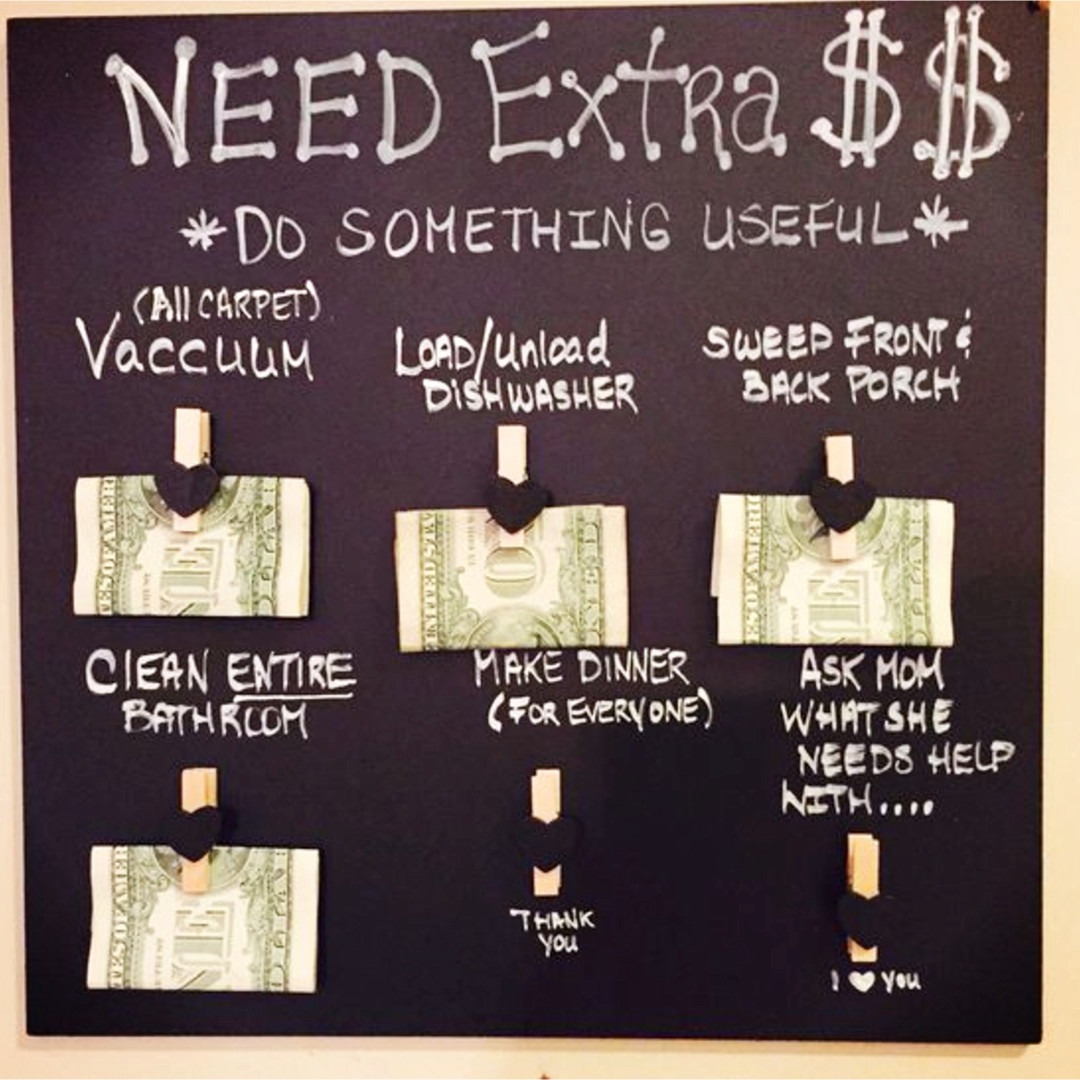 NEED Extra $$
*DO SOMETHING USEFUL*
(All CARPET)
VaccuuM
LOAD/Unload
DISHWASHER
SWEEP FRONT &
BACK PORCH
ONE
ONE
ONE
ClEAN ENTIRE
BATHROOM
MAKE DINNER
(FOR EVERYONE)
ASK MOM
WHAT SHE
NEEDS HELP
WITH....
ONE
THANK
YOU
I ♥ You